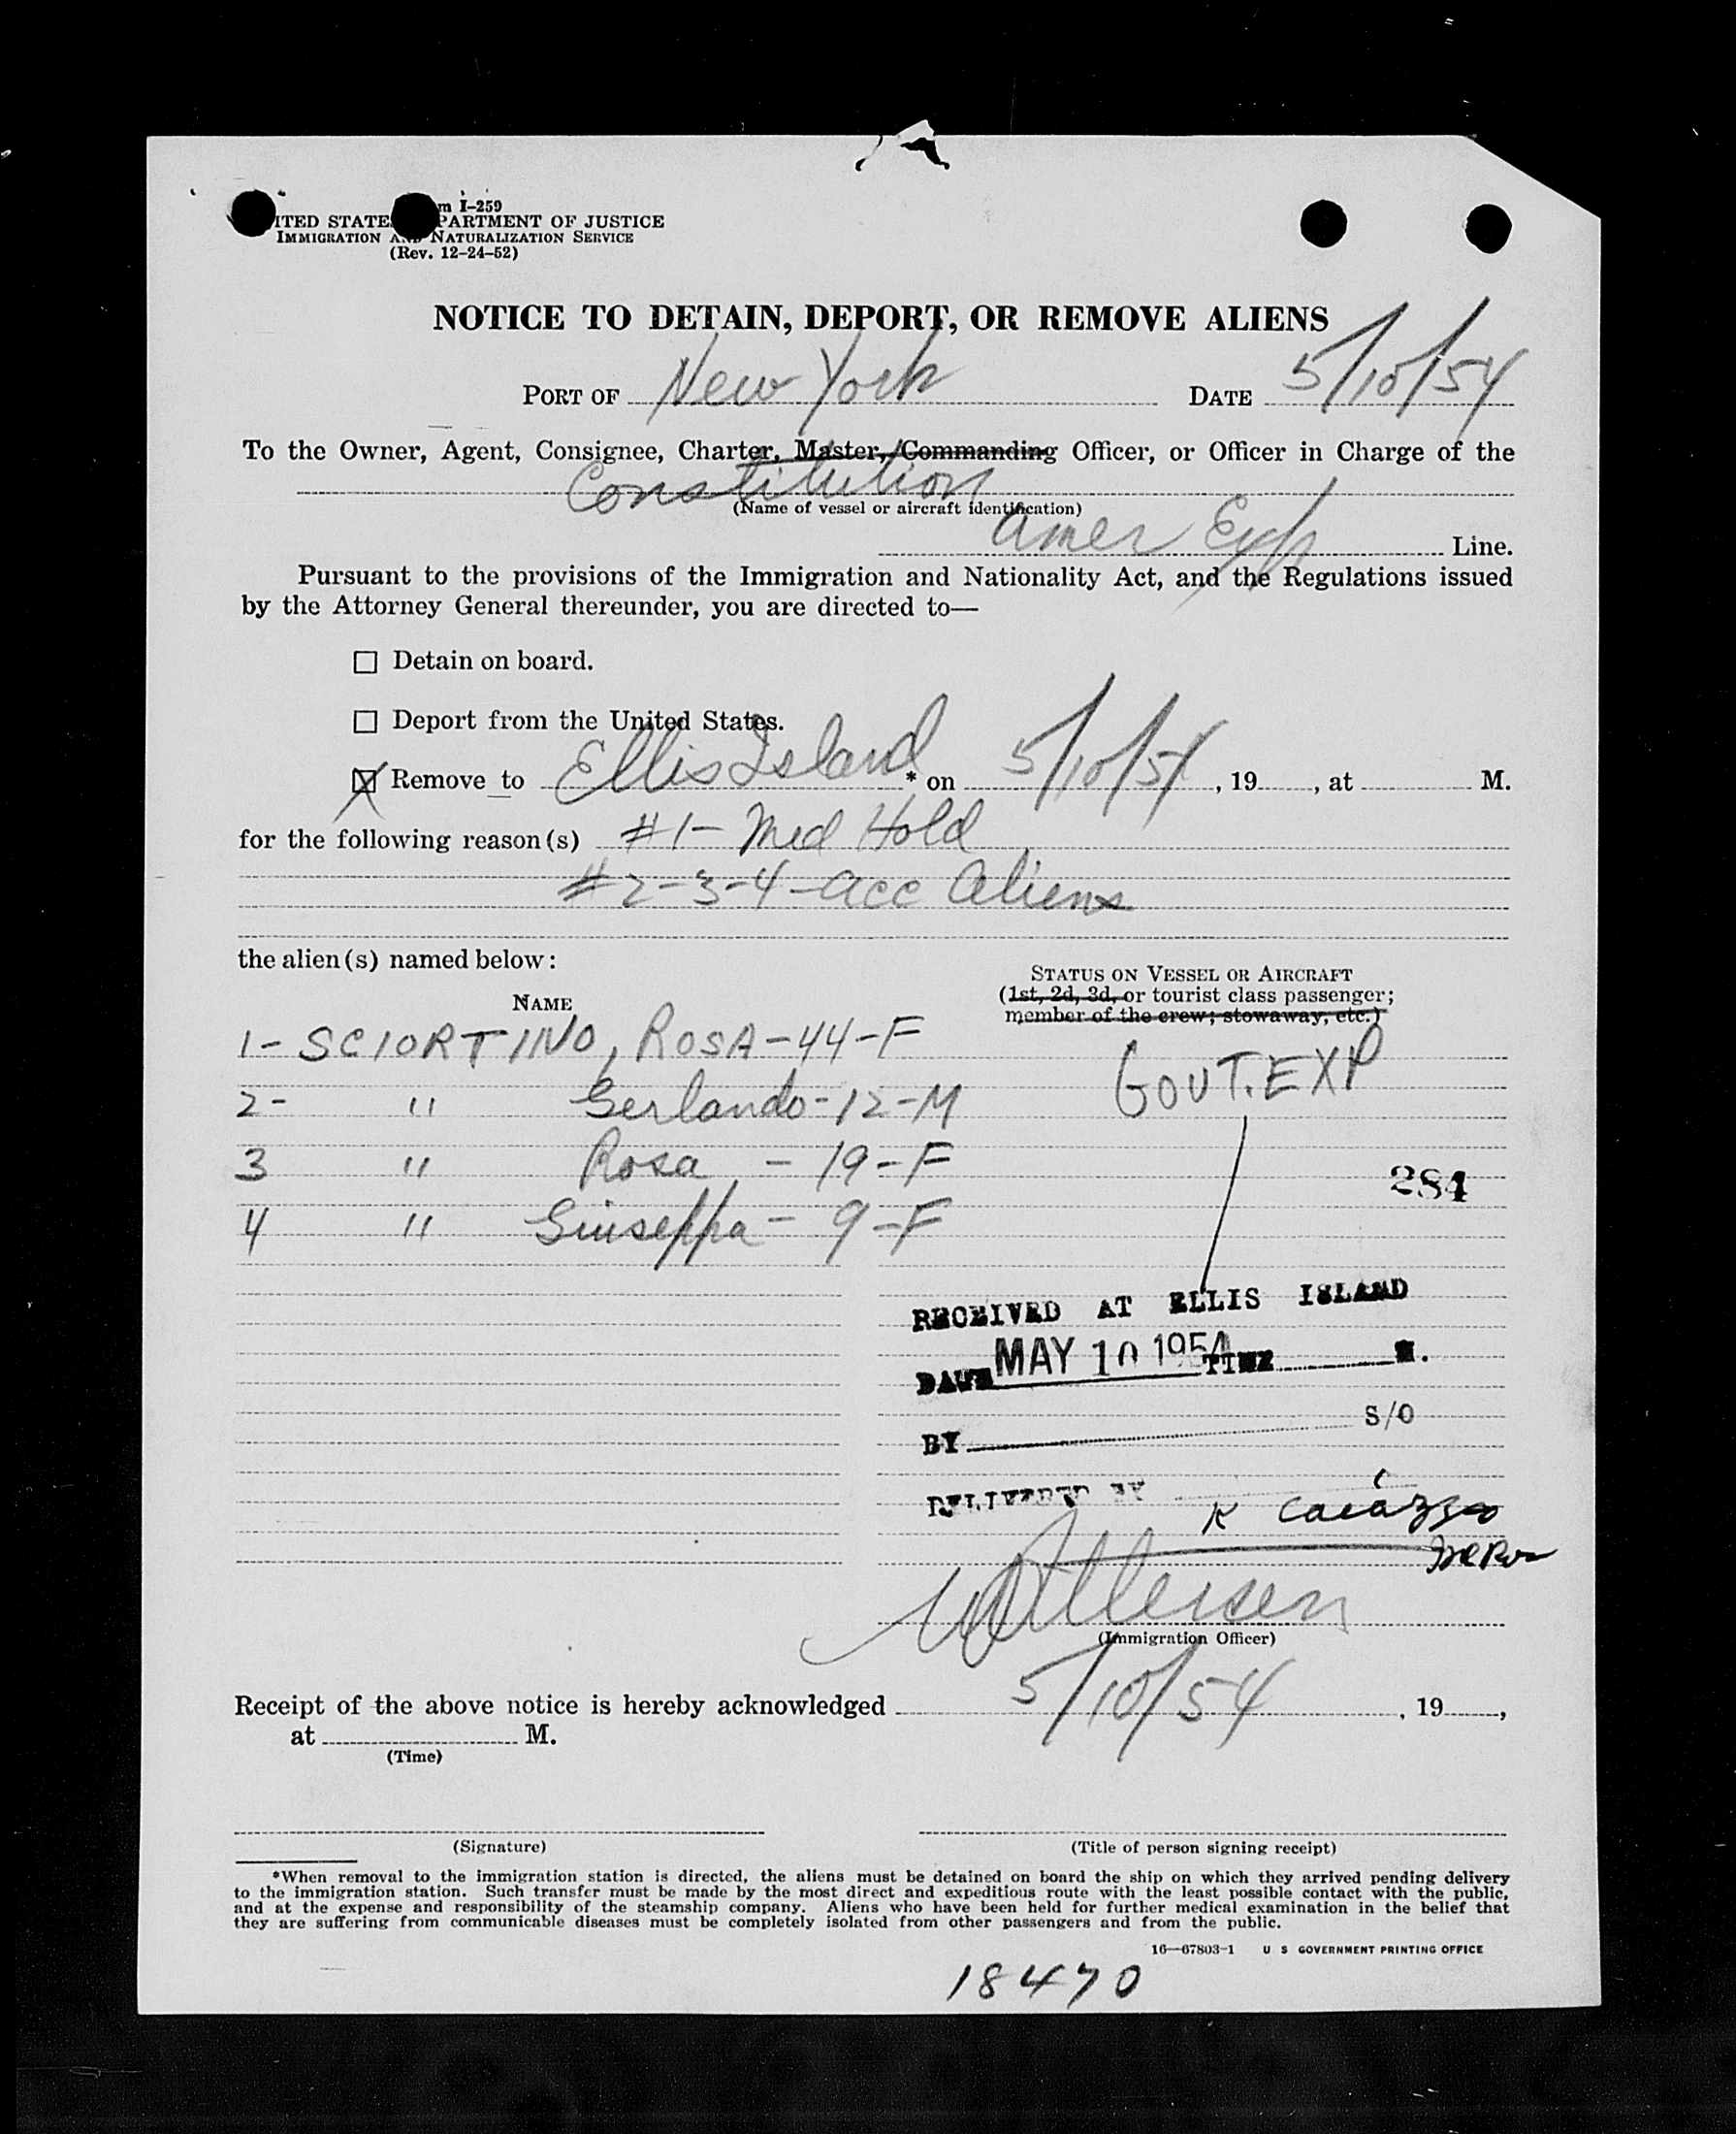 m I-259
ITED STATE PARTMENT OF JUSTICE
IMMIGRATION AND NATURALIZATION SERVICE
(Rev. 12-24-52)
NOTICE TO DETAIN, DEPORT, OR REMOVE ALIENS
PORT OF New York DATE 5/10/54
To the Owner, Agent, Consignee, Charter, Master, Commanding Officer, or Officer in Charge of the
Constitution
(Name of vessel or aircraft identification)
Amer Exp Line.
Pursuant to the provisions of the Immigration and Nationality Act, and the Regulations issued
by the Attorney General thereunder, you are directed to—
☐ Detain on board.
☐ Deport from the United States.
☒ Remove to Ellis Island * on 5/10/54, 19 , at M.
for the following reason(s) #1- Med Hold
#2-3-4-acc aliens
the alien(s) named below:
STATUS ON VESSEL OR AIRCRAFT
(1st, 2d, 3d, or tourist class passenger;
member of the crew; stowaway, etc.)
NAME
1- SCIORTINO, ROSA-44-F
GOVT. EXP
2- " Gerlando-12-M
3 " Rosa - 19-F
284
4 " Giuseppa - 9-F
RECEIVED AT ELLIS ISLAND
DATE MAY 10 1954 TIME M.
BY S/O
DELIVERED BY
K Caiazzo
(Immigration Officer)
Receipt of the above notice is hereby acknowledged 5/10/54, 19 ,
at M.
(Time)
(Signature) (Title of person signing receipt)
*When removal to the immigration station is directed, the aliens must be detained on board the ship on which they arrived pending delivery
to the immigration station. Such transfer must be made by the most direct and expeditious route with the least possible contact with the public,
and at the expense and responsibility of the steamship company. Aliens who have been held for further medical examination in the belief that
they are suffering from communicable diseases must be completely isolated from other passengers and from the public.
16—67803-1 U S GOVERNMENT PRINTING OFFICE
18470